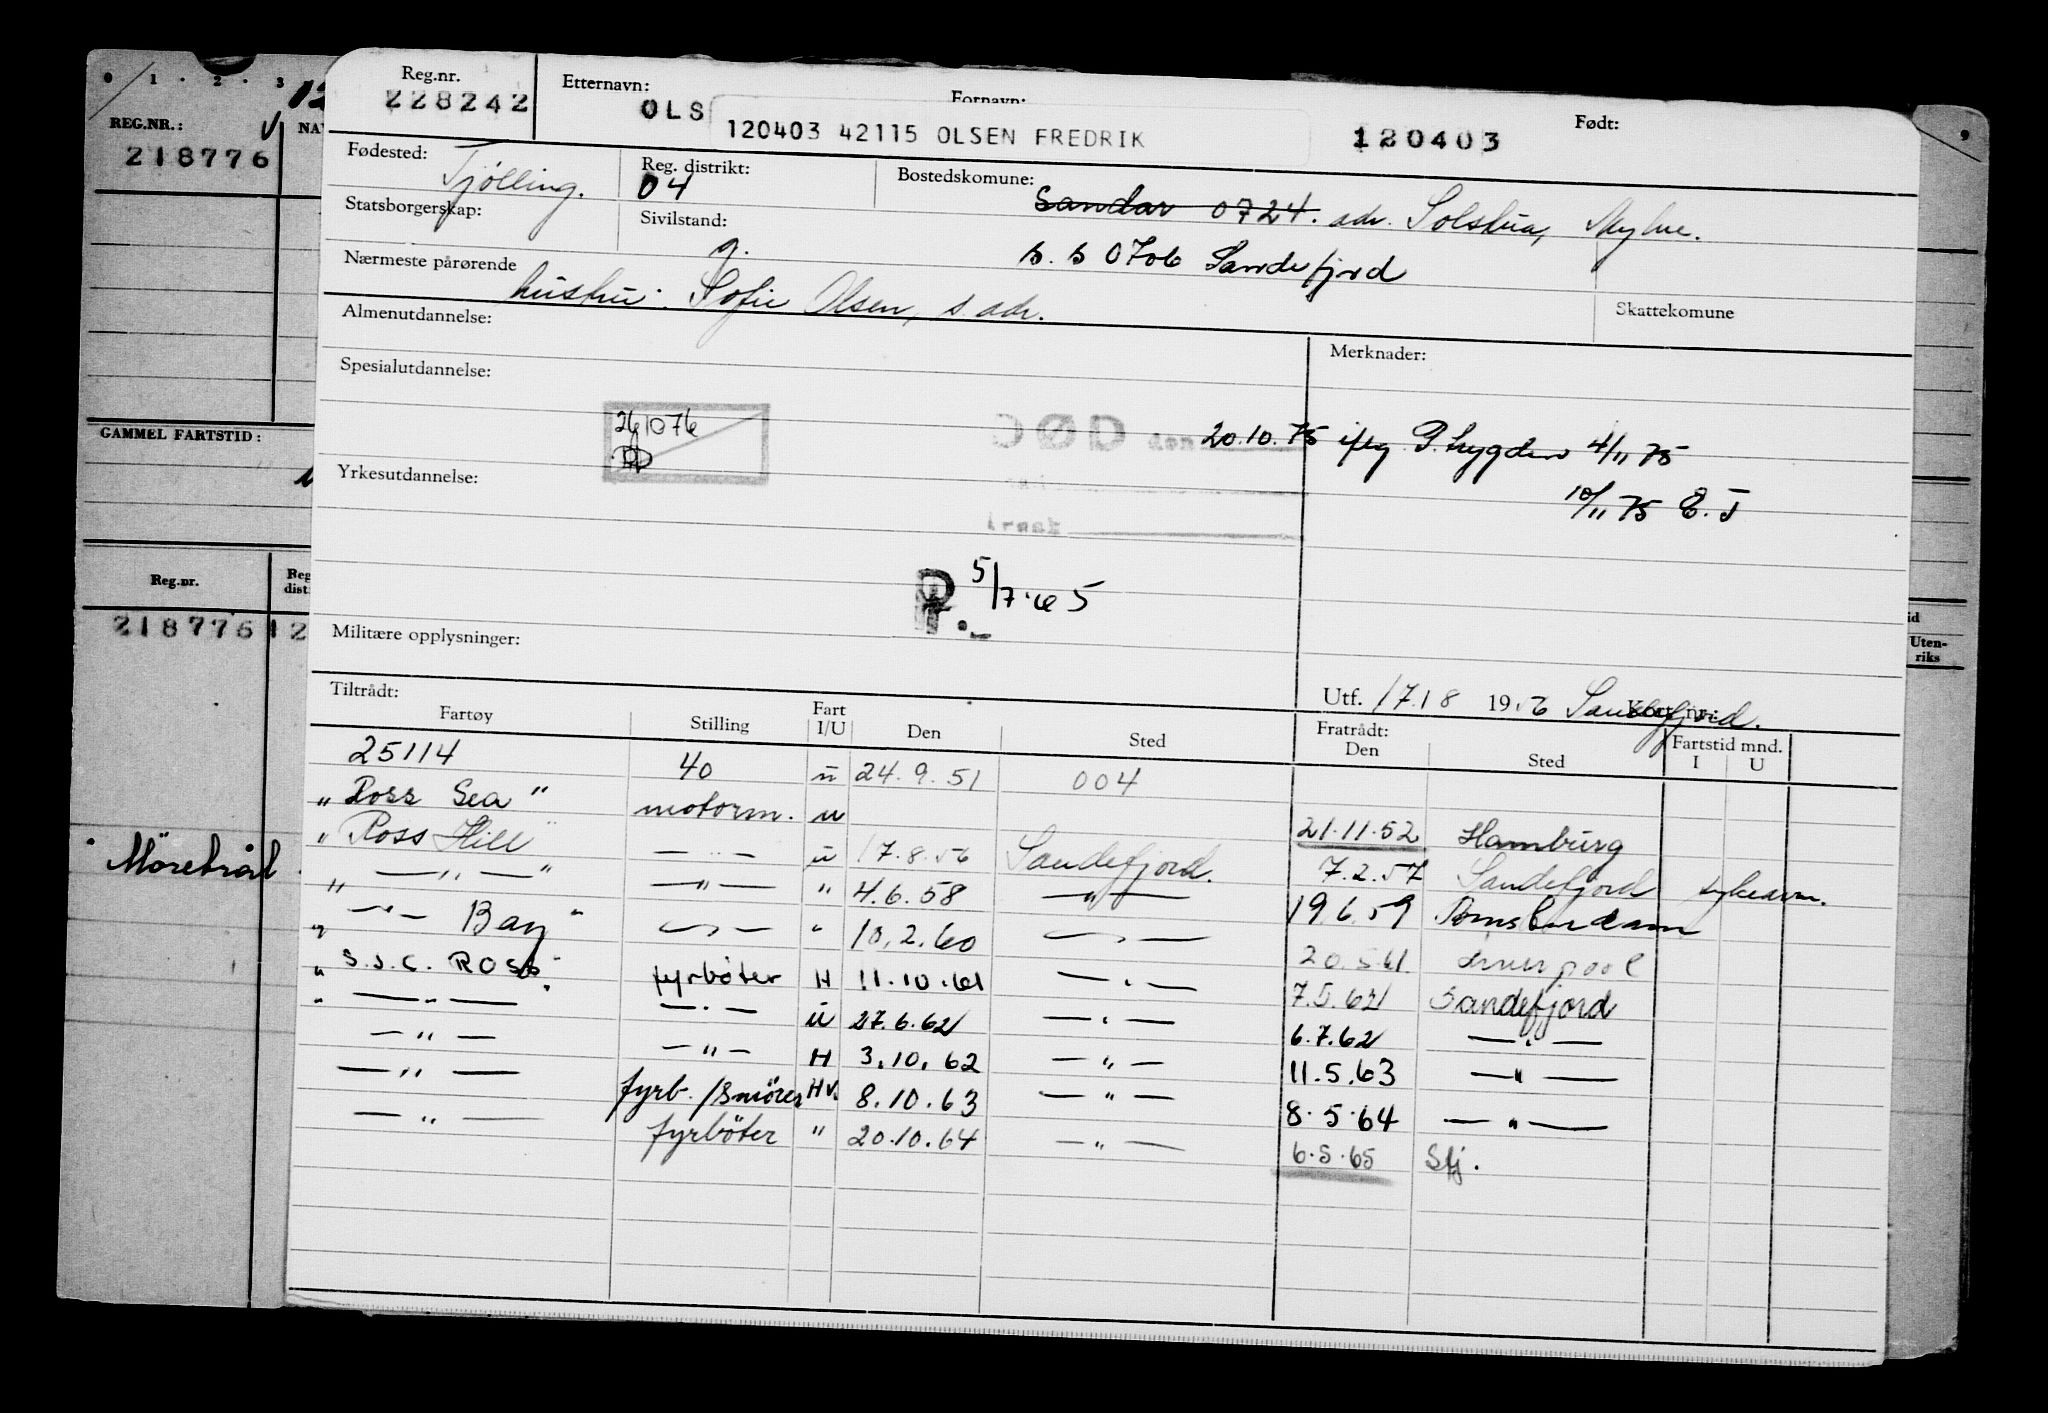 0 · 1 · 2 · 3
9
12
REG.NR.: NA
218776
GAMMEL FARTSTID:
Reg.nr. Reg dist
218776 12
id
Uten-
riks
Reg.nr. Etternavn: Fornavn: Født:
228242 OLS 120403 42115 OLSEN FREDRIK 120403
Fødested: Tjølling. Reg. distrikt: 04 Bostedskomune: Sandar 0724. adr. Solstua,
Statsborgerskap: Sivilstand: g. 0706 Sandefjord
Nærmeste pårørende hustru: Sofie Olsen, s. adr.
Skattekomune
Almenutdannelse:
Merknader:
Spesialutdannelse:
261076
DØD den 20.10.75 iflg. 4/11 75
Yrkesutdannelse: 10/11 75 E. J
Årsak
5/7.65
Militære opplysninger:
Utf. 17/8 1956 Sandefjord.
Kort nr.:
Tiltrådt: Fratrådt: Fartstid mnd.
Fartøy Stilling Fart I/U Den Sted Den Sted I U
25114 40 u 24.9.51 004
"Ross Sea" motorm. u 21.11.52 Hamburg
"Ross Hill" — " — u 17.8.56 Sandefjord. 7.2.57 Sandefjord
" — " — " — " — " 4.6.58 — " — 19.6.59 Amsterdam
" — " — Bay" — " — " 10.2.60 — " — 20.5.61. Liverpool
" S.J.C. ROSS" fyrbøter H 11.10.61 — " — 7.5.62 Sandefjord
" — " — — " — u 27.6.62 — " — 6.7.62 — " —
— " — — " — H 3.10.62 — " — 11.5.63 — " —
— " — fyrb./Smörer Hv. 8.10.63 — " — 8.5.64 — " —
— " — fyrböter " 20.10.64 — " — 6.5.65 Sfj.